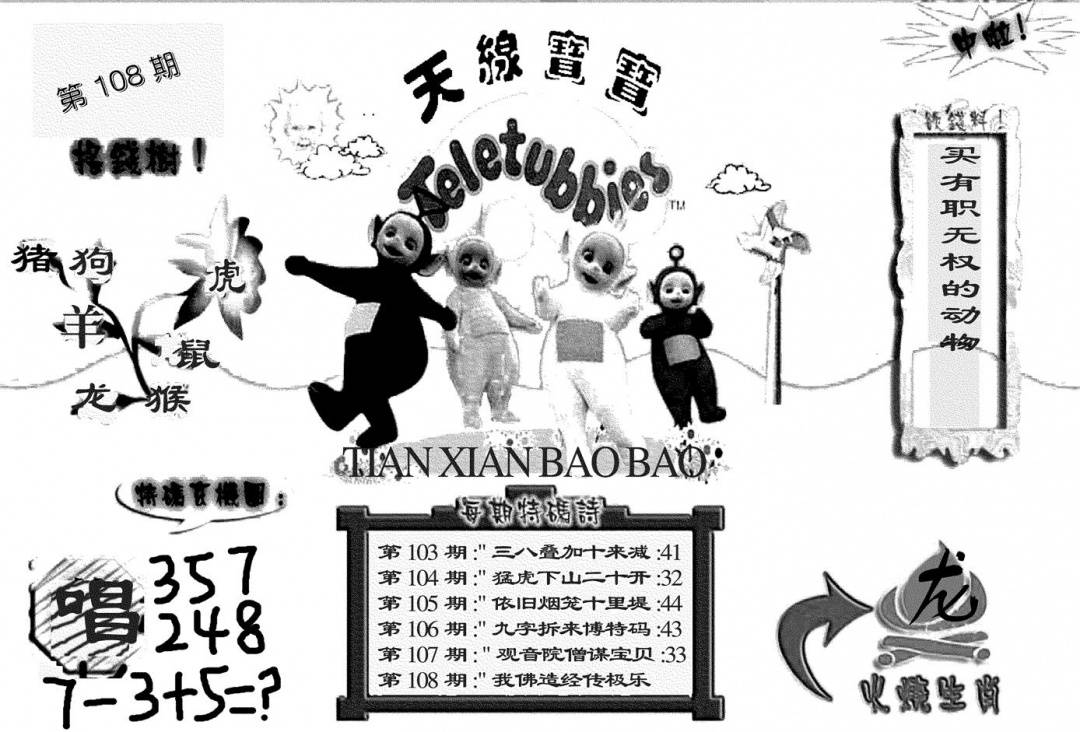 第 108 期
天線寶寶
中啦！
Teletubbies
TM
搖錢樹！
猪 狗 虎
羊 鼠
龙 猴
买有职无权的动物
TIAN XIAN BAO BAO
特碼玄機圖：
唱
357
248
7-3+5=?
每期特碼詩
第 103 期 :" 三八叠加十来减 :41
第 104 期 :" 猛虎下山二十开 :32
第 105 期 :" 依旧烟笼十里堤 :44
第 106 期 :" 九字拆来博特码 :43
第 107 期 :" 观音院僧谋宝贝 :33
第 108 期 :" 我佛造经传极乐
龙
火燒生肖